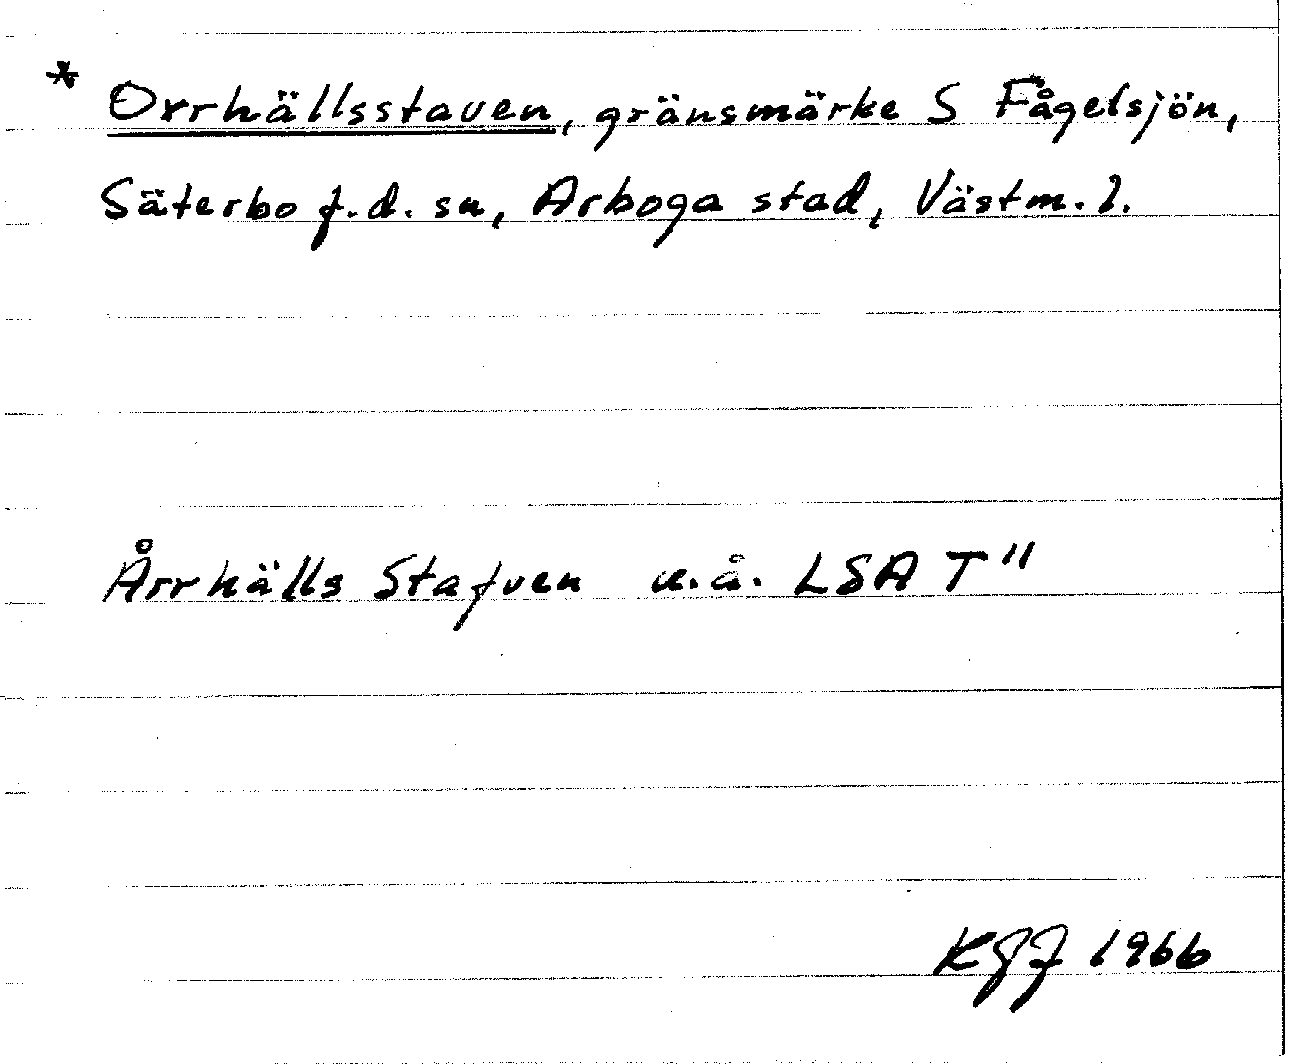 * Orrhällsstaven, gränsmärke S Fågelsjön,
Säterbo f.d. sn, Arboga stad, Västm. l.
Årrhälls Stafven u.å. LSA T"
KJJ 1966